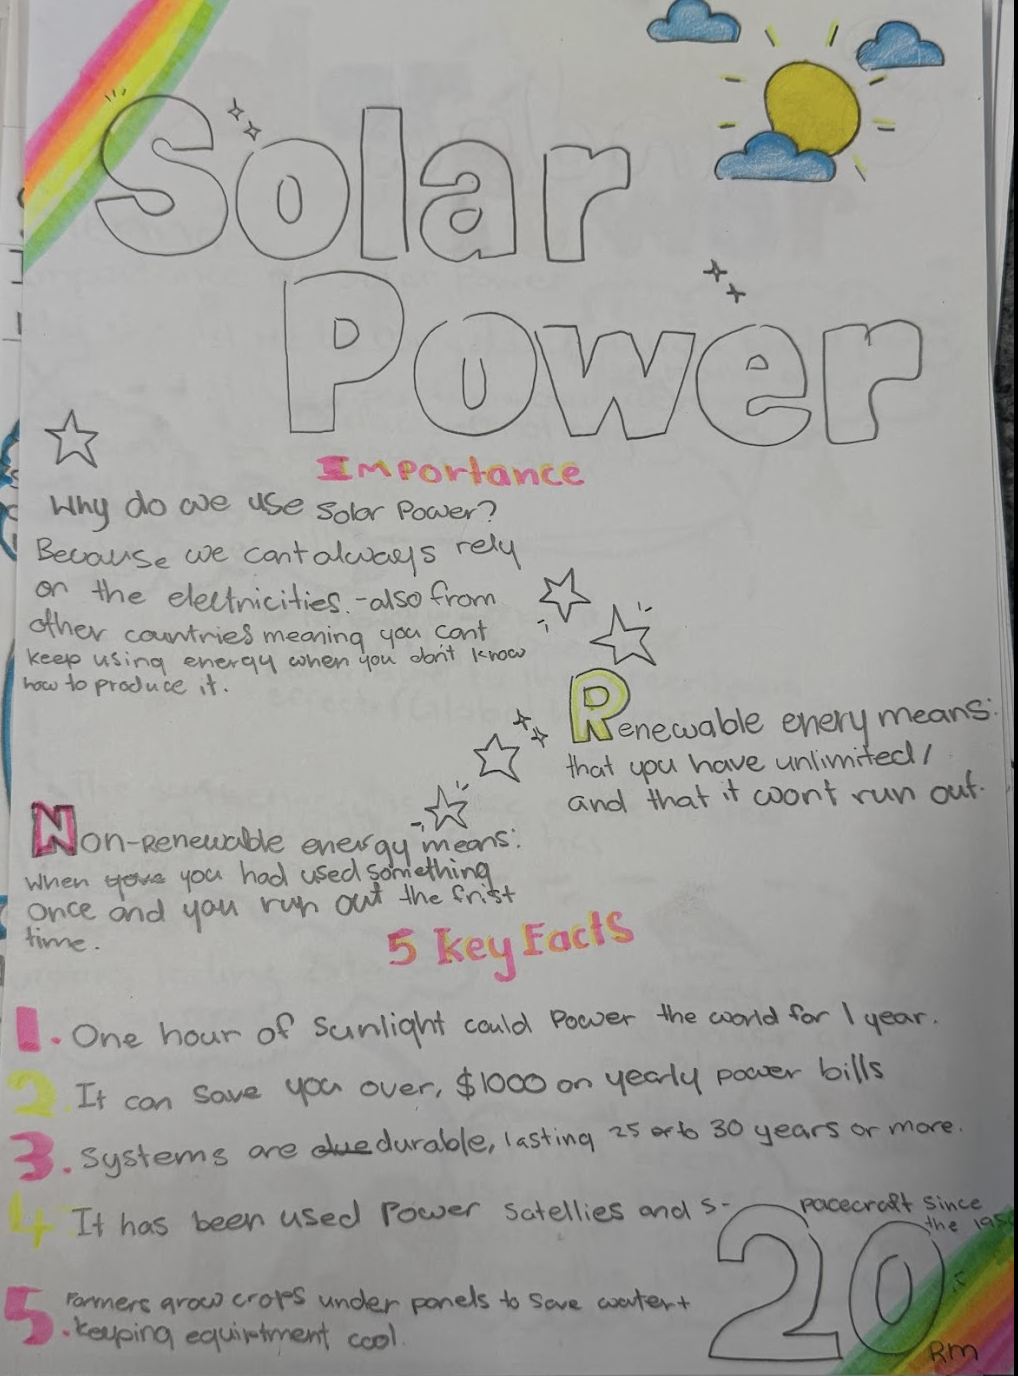 Solar
Power
Importance
Why do we use Solar Power?
Because we cant always rely
on the electricities. - also from
other countries meaning you cant
keep using energy when you don't know
how to produce it.
Renewable enery means:
that you have unlimited /
and that it won't run out.
Non-Renewable energy means:
When you had used something
once and you run out the frist
time.
5 Key Facts
1. One hour of sunlight could Power the world for 1 year.
2 It can save you over, $1000 on yearly power bills
3. Systems are due durable, lasting 25 to 30 years or more.
4 It has been used Power satellies and s- pacecraft since
the 195
5. Farmers grow crops under panels to save water +
keeping equirtment cool.
20
RM